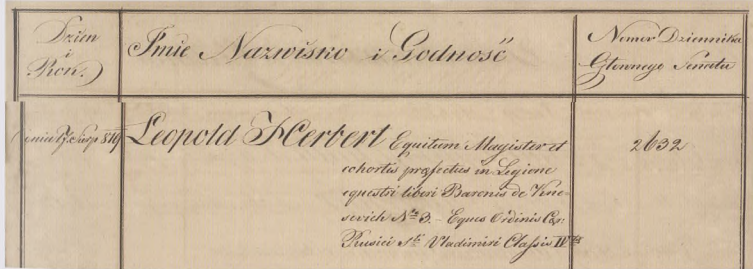 Dzien
i
Rok.
Imie Nazwisko i Godność
Numer Dziennika
Głownego Senatu
dnia Sierp 819
Leopold Herbert Equitum Magister et
cohortis præfectus in Legione
equestri liberi Baronis de Knesevich
Nro 3. - Eques Ordinis Cæs.
Rusici Sti Vladimiri Classis IVtæ
2632